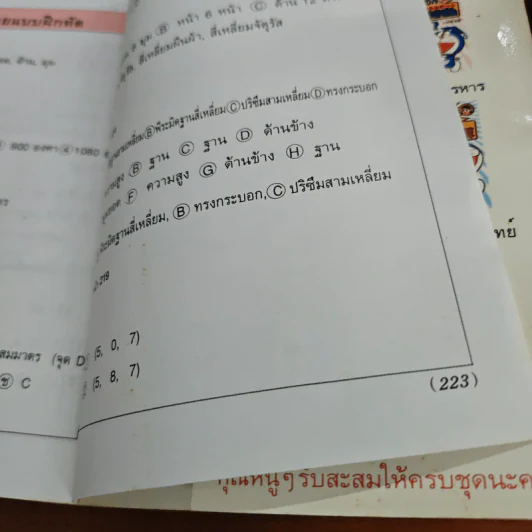 ยแบบฝึกหัด
มุม Ⓑ หน้า 6 หน้า Ⓒ ด้าน 12
สี่เหลี่ยมผืนผ้า, สี่เหลี่ยมจัตุรัส
Ⓑพีระมิดฐานสี่เหลี่ยมⒸปริซึมสามเหลี่ยมⒹทรงกระบอก
900 องศา ④ 1080
Ⓑ ฐาน Ⓒ ฐาน Ⓓ ด้านข้าง
Ⓕ ความสูง Ⓖ ด้านข้าง Ⓗ ฐาน
ฐานสี่เหลี่ยม, Ⓑ ทรงกระบอก,Ⓒ ปริซึมสามเหลี่ยม
-219
สมมาตร (จุด D
(5, 0, 7)
C
(5, 8, 7)
(223)
รหาร
ทย์
คุณหนูๆรับสะสมให้ครบชุดนะค